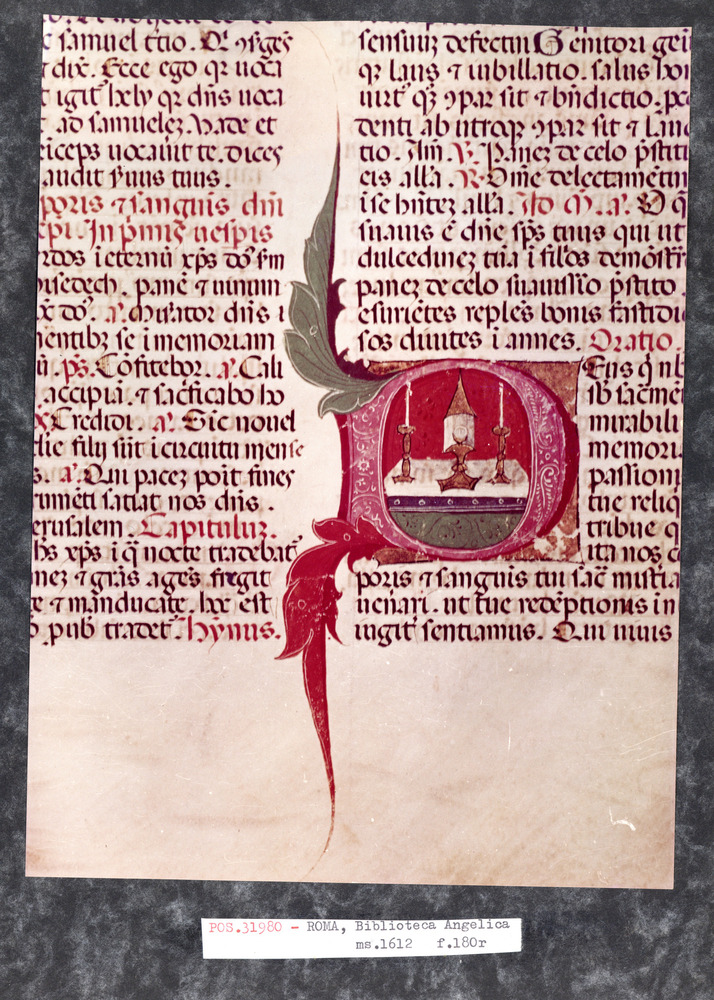 samuel
dix̄. Ecce ego qr uoca
igit hely qr dn̄s uoca
ad samuelez. Vade et
iceps uocauit te. dices
audit suus tuus.
poris ⁊ sanguis dn̄i
xpi. In prim̄ uespis
dos ieternū xp̄s
isedech. panē ⁊ uinum
a. Misator dn̄s i
entibꝫ se i memoriam
ps. Cōfitebor. a. Cali
accipiā. ⁊ sacficabo ho
Credidi. a. Sic nouel
lie filij sūt i circuitu mense
a. Qui pacez poit fines
frumēti satiat nos dn̄s.
erusalem. Capituluz.
xp̄s i q̄ nocte tradebat
nez ⁊ grās agēs fregit
e ⁊ manducate. hoc est
tradet̄. Hỳnus.
sensuuꝫ defectui Genitori geīt
qꝫ laus ⁊ iubillatio. salus hon
uirt̄ qꝫ ꝯpar sit ⁊ bn̄dictio. pro
denti ab utroqꝫ ꝯpar sit ⁊ lau
tio. V. Panez de celo p̄stiti
eis all̄a. R. Om̄e delectamētu
i se hn̄tez all̄a. a. O q̄
suauis ē dn̄e sp̄s tuus qui ut
dulcedinez tuā i filios demōstr
panez de celo suauissīo p̄stito
esurietes reples bonis fastidi
sos diuites i annes. Oratio.
Eus q̄ nb̄
sb̄ sacmē
mirabili
memori
passioni
tue reliq
tribue q
ita nos c
poris ⁊ sanguis tui sac̄ mistia
uenari. ut tue redēptionis in
iugit̄ sentiamus. Qui uiuis
POS.31980 - ROMA, Biblioteca Angelica
ms.1612 f.180r